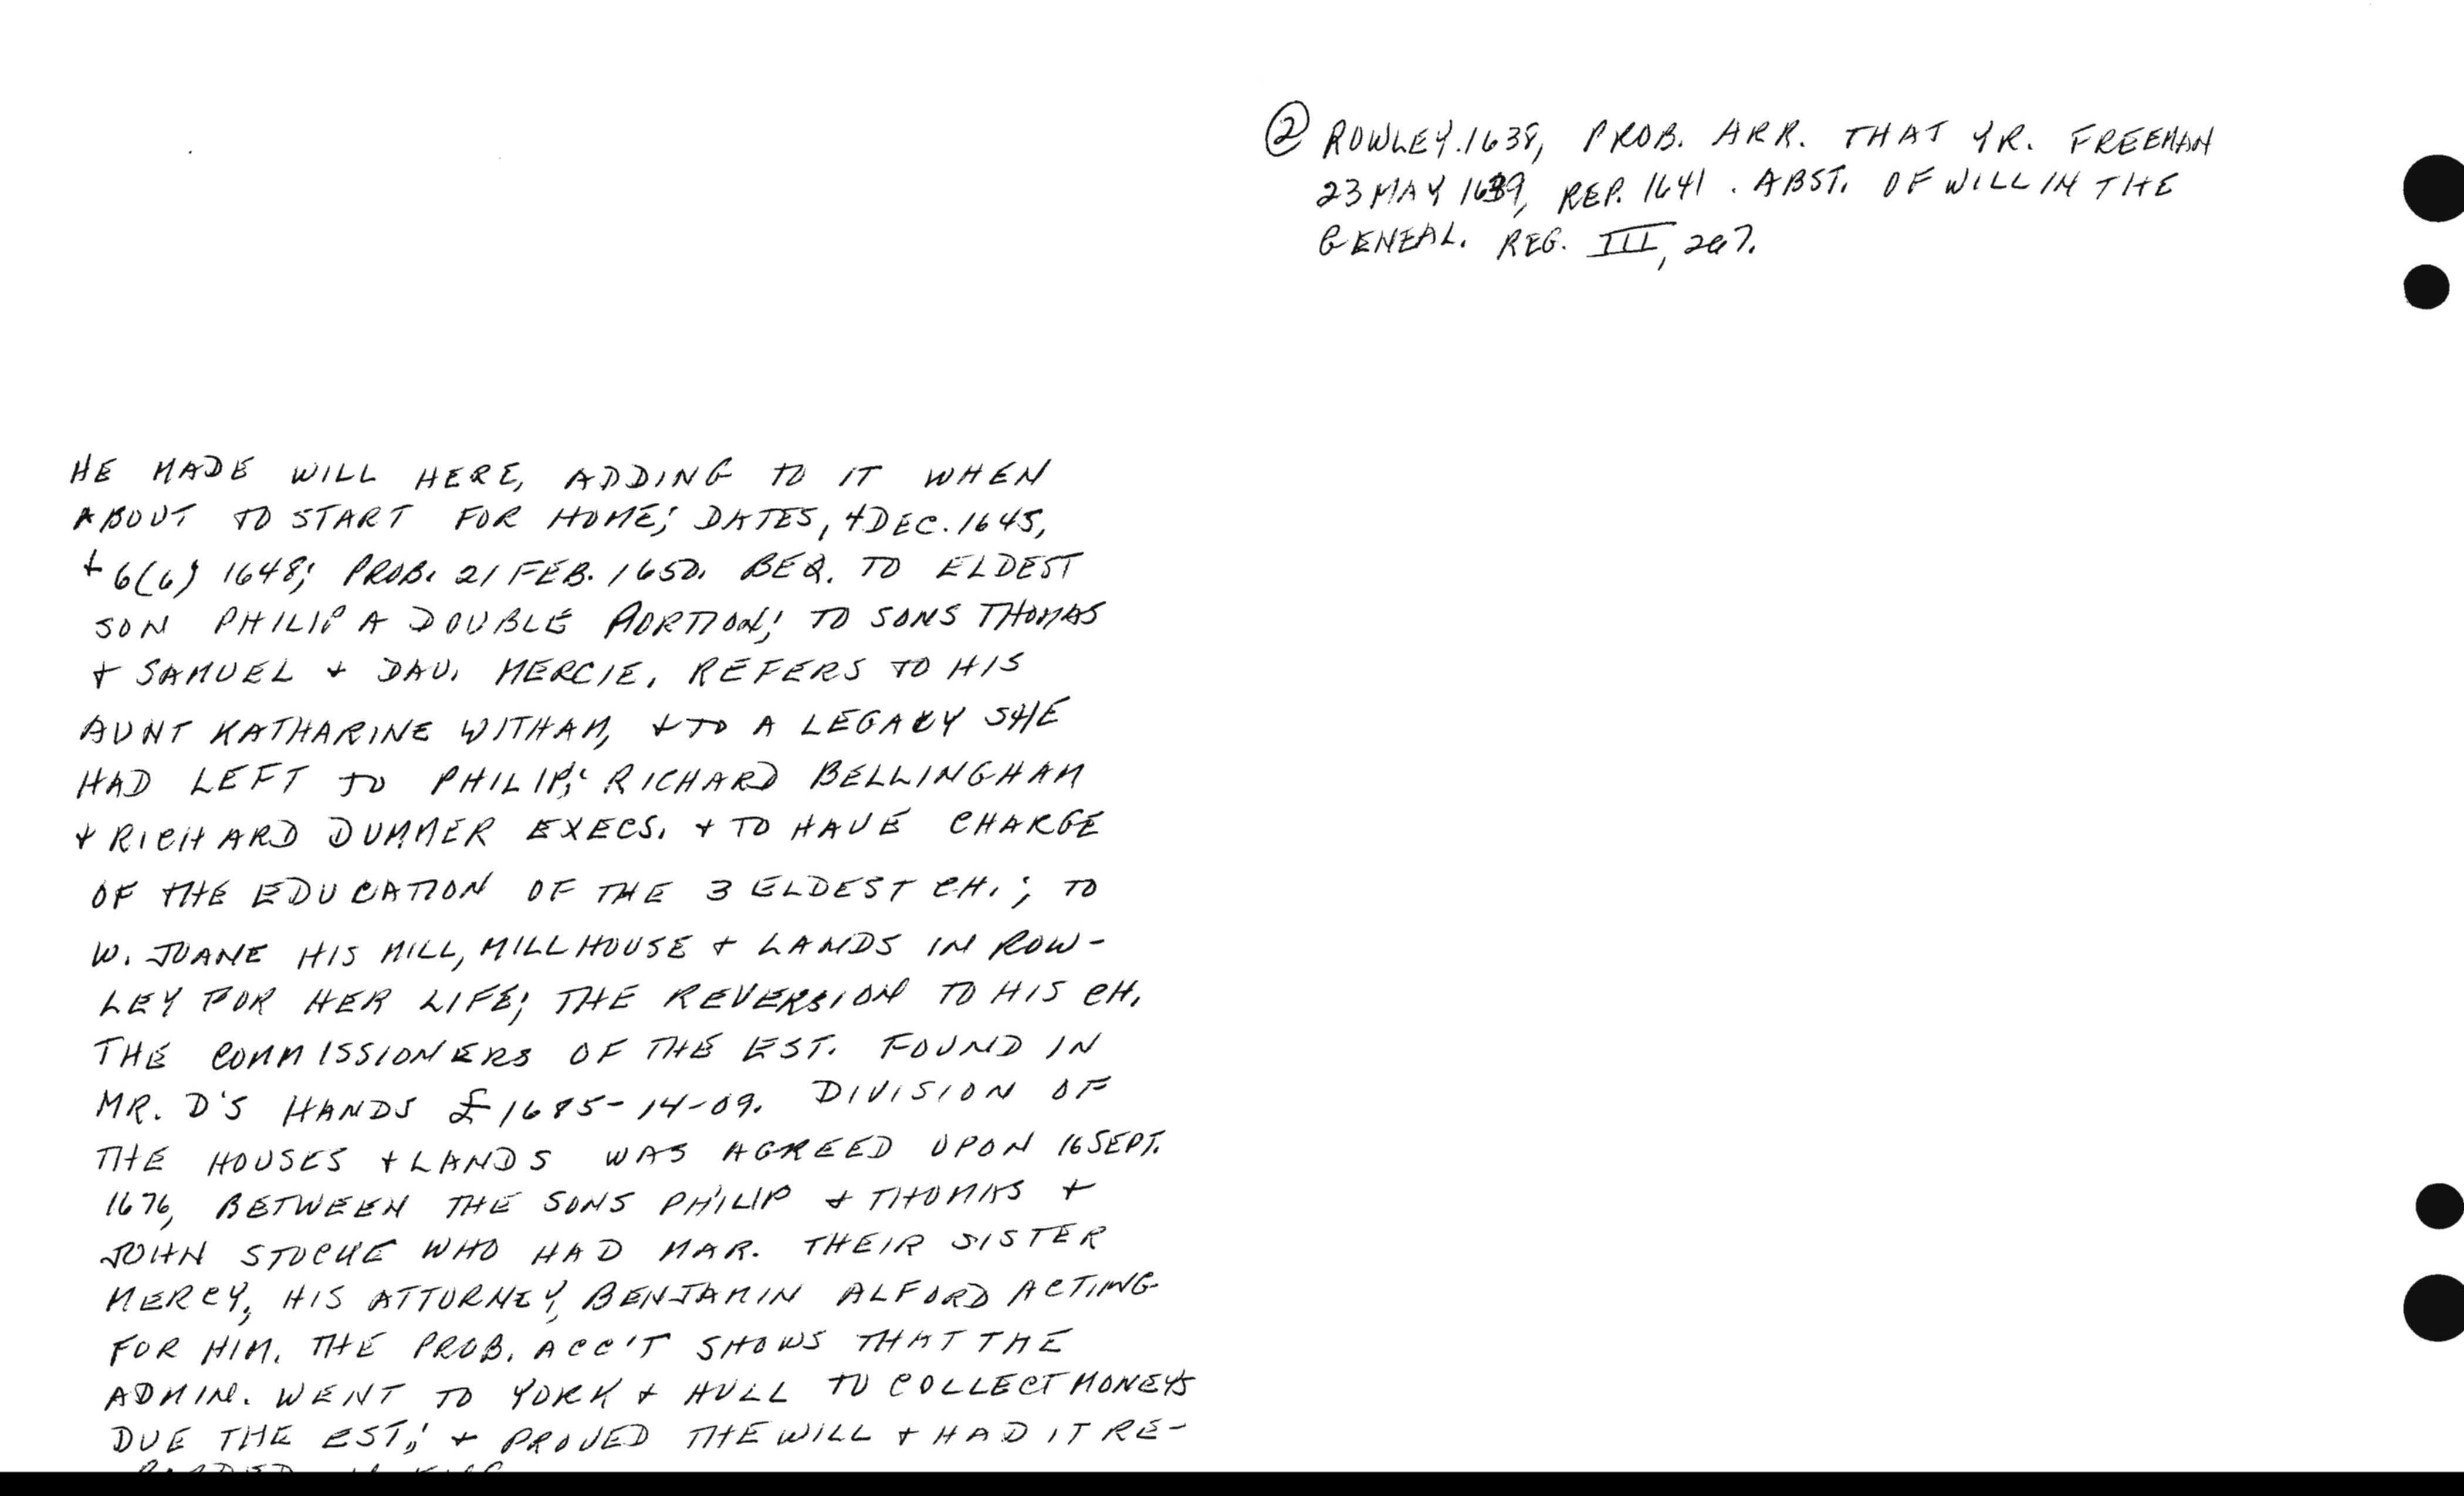 ② ROWLEY. 1638, PROB. ARR. THAT YR. FREEMAN
23 MAY 1639, REP. 1641. ABST. OF WILL IN THE
GENEAL. REG. III, 267.
HE MADE WILL HERE, ADDING TO IT WHEN
ABOUT TO START FOR HOME; DATES, 4 DEC. 1645,
+ 6(6) 1648; PROB. 21 FEB. 1650. BEQ. TO ELDEST
SON PHILIP A DOUBLE PORTION; TO SONS THOMAS
+ SAMUEL + DAU. MERCIE. REFERS TO HIS
AUNT KATHARINE WITHAM, + TO A LEGACY SHE
HAD LEFT TO PHILIP; RICHARD BELLINGHAM
+ RICHARD DUMMER EXECS. + TO HAVE CHARGE
OF THE EDUCATION OF THE 3 ELDEST CH.; TO
W. JOANE HIS MILL, MILL HOUSE + LANDS IN ROW-
LEY FOR HER LIFE; THE REVERSION TO HIS CH.
THE COMMISSIONERS OF THE EST. FOUND IN
MR. D'S HANDS £1685-14-09. DIVISION OF
THE HOUSES + LANDS WAS AGREED UPON 16 SEPT.
1676, BETWEEN THE SONS PHILIP + THOMAS +
JOHN WHO HAD MAR. THEIR SISTER
MERCY, HIS ATTORNEY, BENJAMIN ALFORD ACTING
FOR HIM. THE PROB. ACC'T SHOWS THAT THE
ADMIN. WENT TO YORK + HULL TO COLLECT MONEYS
DUE THE EST; + PROVED THE WILL + HAD IT RE-